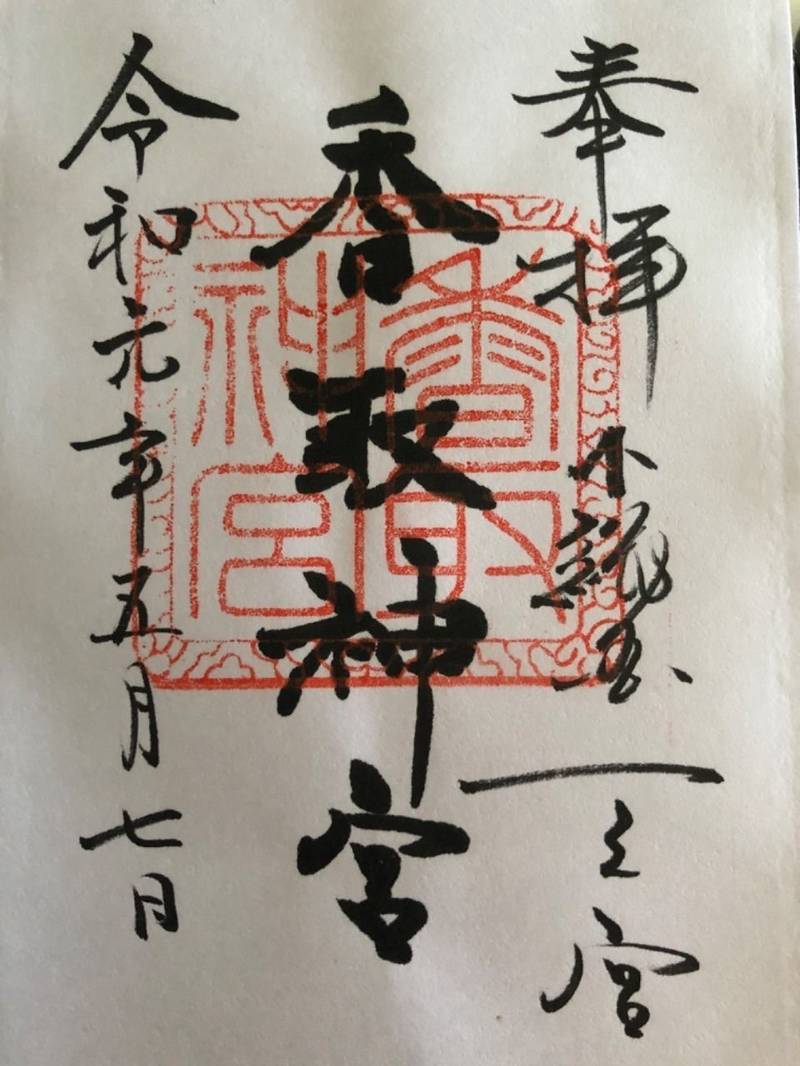 奉拝 下総国一之宮
香取神宮
令和元年五月七日
香取
神宮